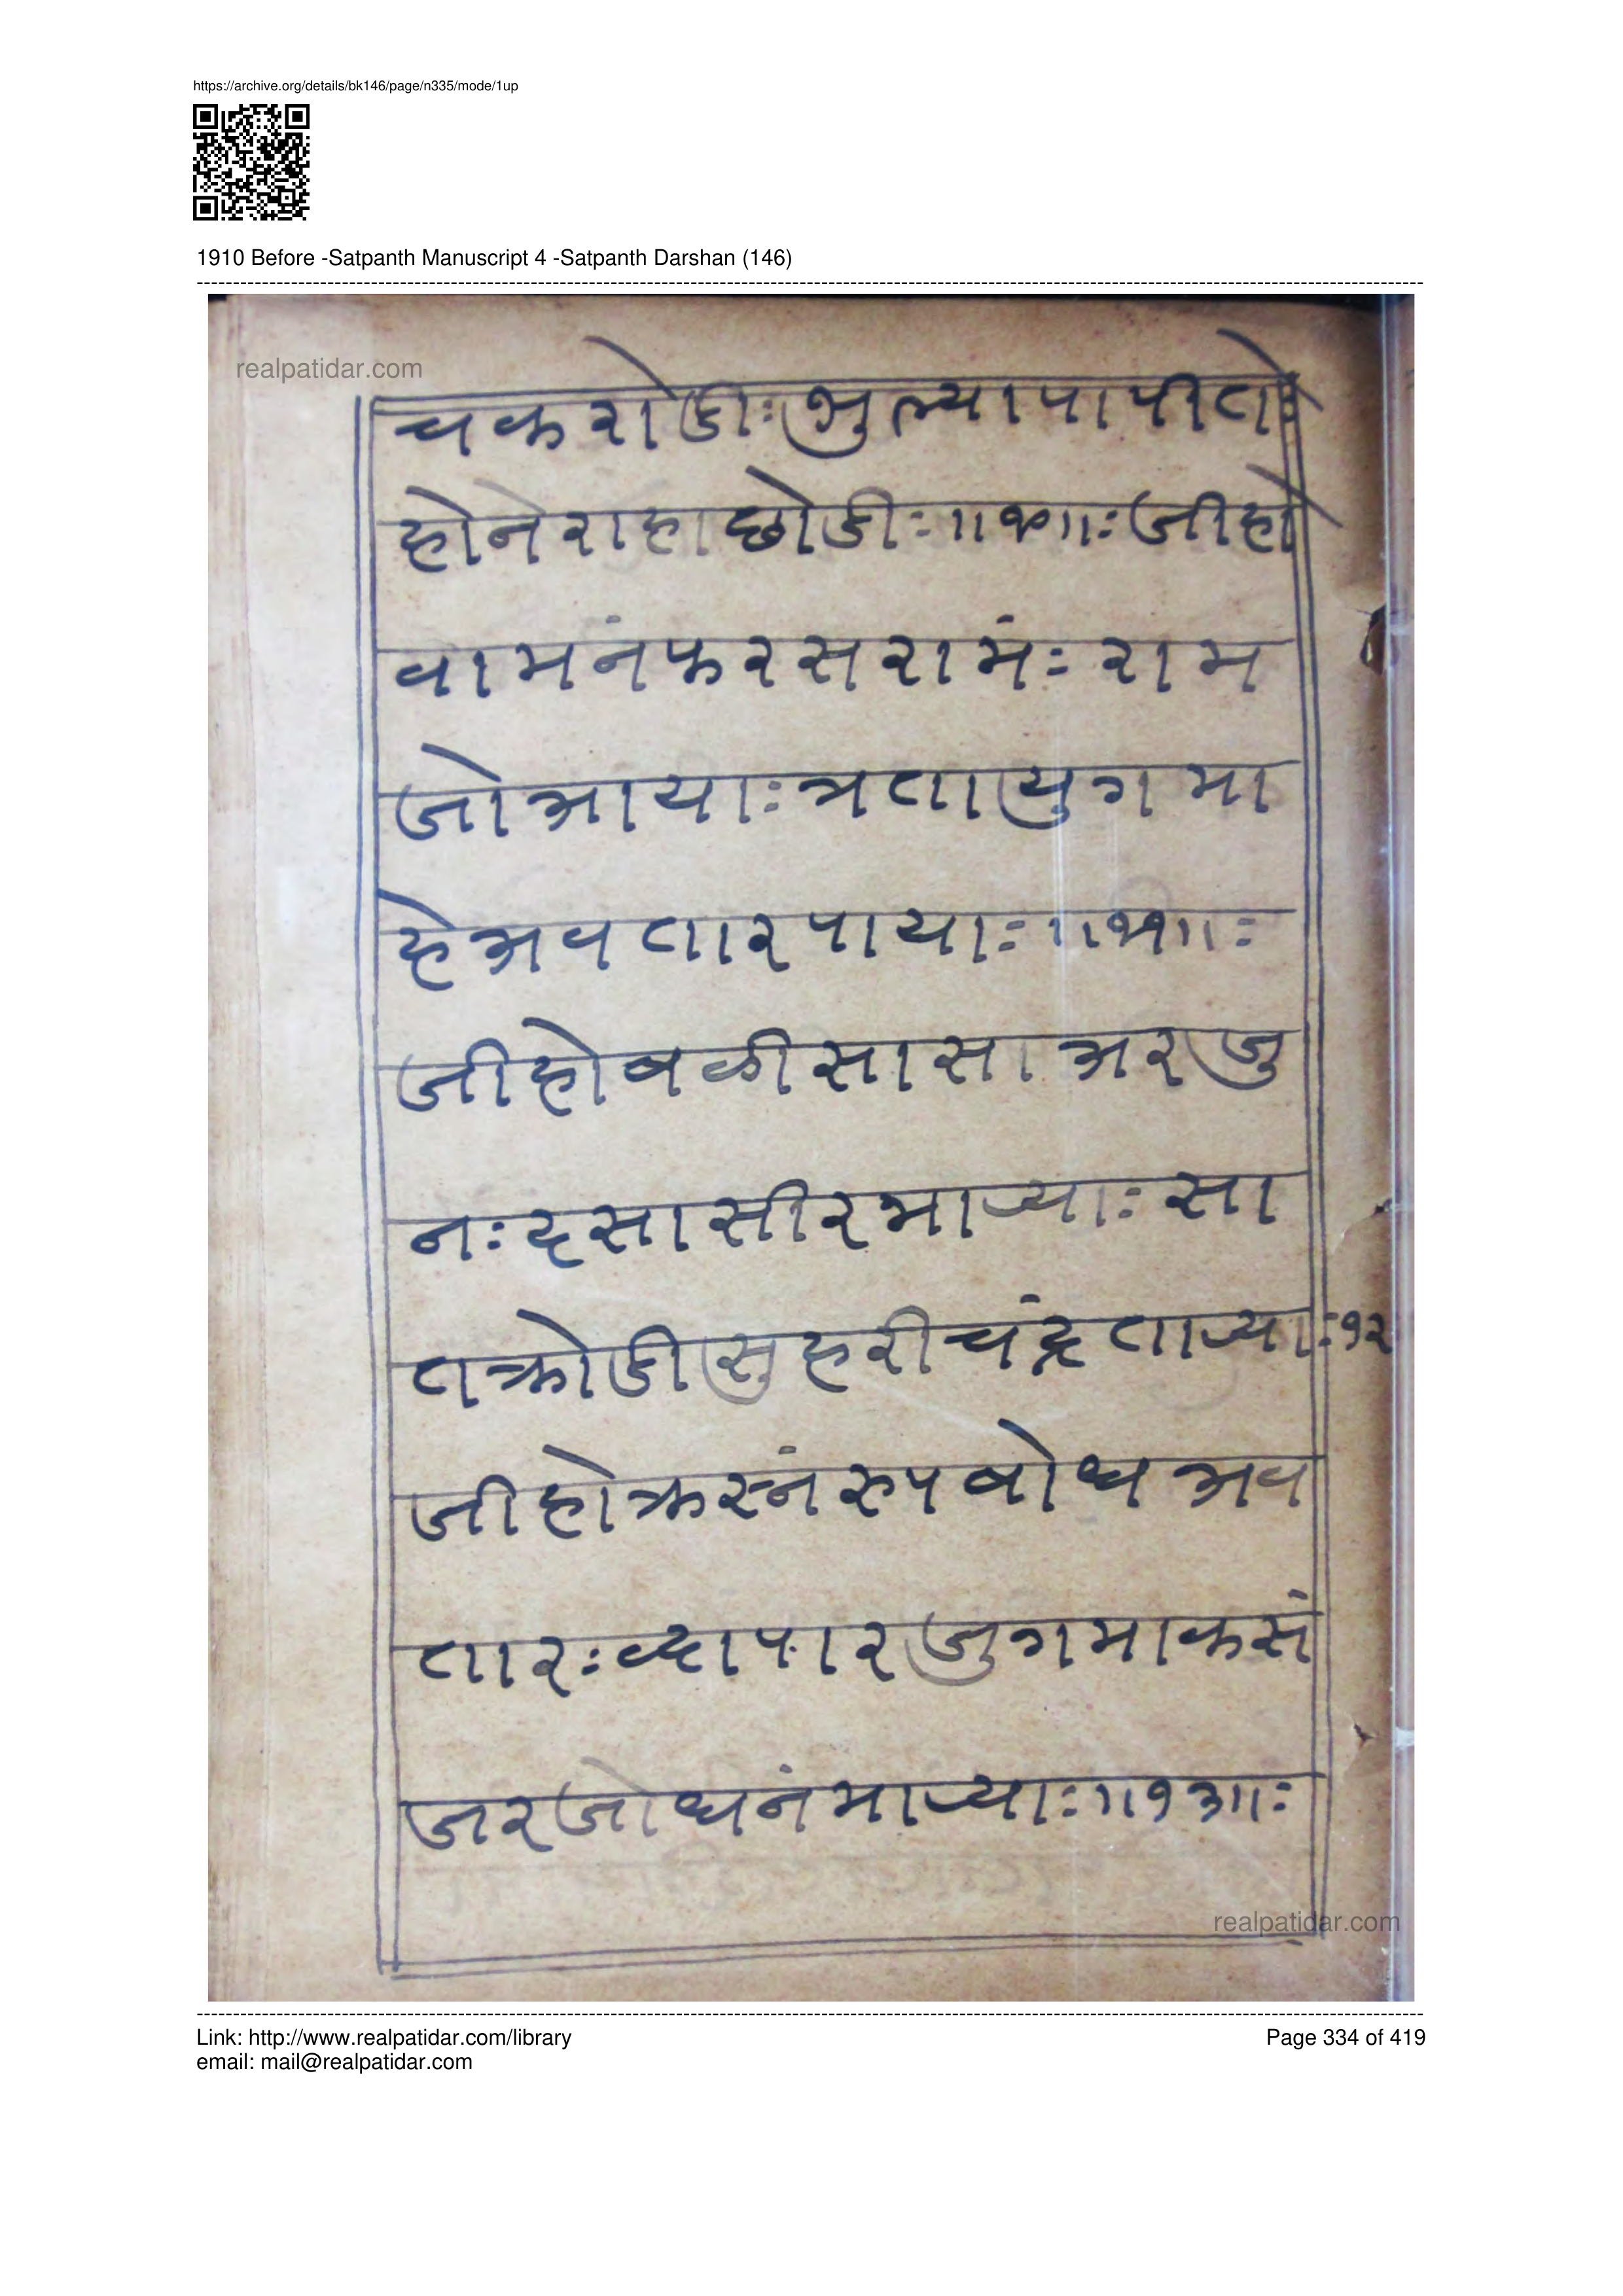 https://archive.org/details/bk146/page/n335/mode/1up
1910 Before -Satpanth Manuscript 4 -Satpanth Darshan (146)
realpatidar.com
चकरोडीःभुल्यापापीतोः
होनेराहाछोडीः॥१०॥ःजीहो
वामनंफरसरामंः राम
जोआयाःत्रतायुगमा
हेअवतारपायाः॥११॥ः
जीहोबळीसासाअरजु
नःदसासीरमाऱ्याः सा
तक्रोडीसुहरीचंद्रताऱ्याः१२
जीहोक्रस्नंरुपबोधअव
तारःव्दापारजुगमाकसं
जरजोधनंमाऱ्याः॥१३॥ः
realpatidar.com
Link: http://www.realpatidar.com/library
Page 334 of 419
email: mail@realpatidar.com